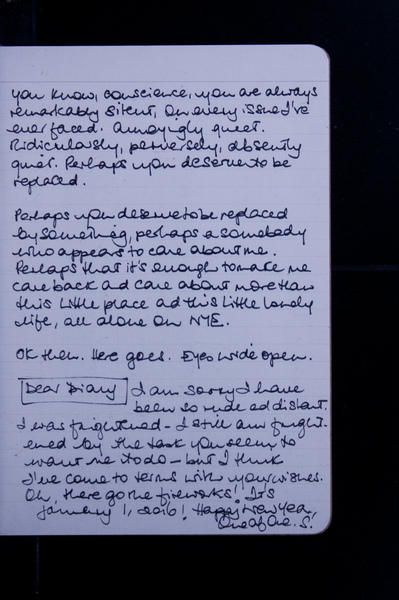 you know, conscience, you are always
remarkably silent, on every issue I've
ever faced. Annoyingly quiet.
Ridiculously, perversely, absently
quiet. Perhaps you deserve to be
replaced.
Perhaps you deserve to be replaced
by something, perhaps a somebody
who appears to care about me.
Perhaps that it's enough to make me
care back ad care about more than
this little place ad this little lonely
life, all alone on NYE.
OK then. Here goes. Eyes wide open.
Dear Diary I am sorry I have
been so rude ad distant.
I was frightened - I still am fright-
ened by the task you seem to
want me to do - but I think
I've come to terms with your wishes.
Oh, there go the fireworks! It's
January 1, 2016! Happy New Year,
One of One. S.